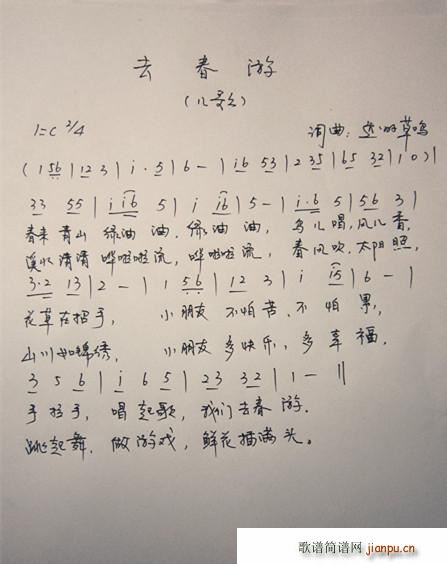 去春游
(儿歌)
1=C 2/4
词曲:草鸣
(1 56 | 12 3 | i · 5 | 6 - | i6 53 | 2 35 | 65 32 | 1 0) |
33 55 | i i6 5 | i i6 | 5 - | i·6 5 | 56 3 |
春来青山 绿油油, 绿油油, 鸟儿唱,风儿香,
溪水清清 哗啦啦流, 哗啦啦流, 春风吹,太阳照,
3·2 13 | 2 - | 1 56 | 12 3 | i i5 | 6 - |
花草在招手, 小朋友 不怕苦,不怕累,
山川如锦绣, 小朋友 多快乐,多幸福.
3 5 6 | i 6 5 | 23 32 | 1 - ||
手拉手, 唱起歌, 我们去春游.
跳起舞, 做游戏, 鲜花插满头。
歌谱简谱网
jianpu.cn